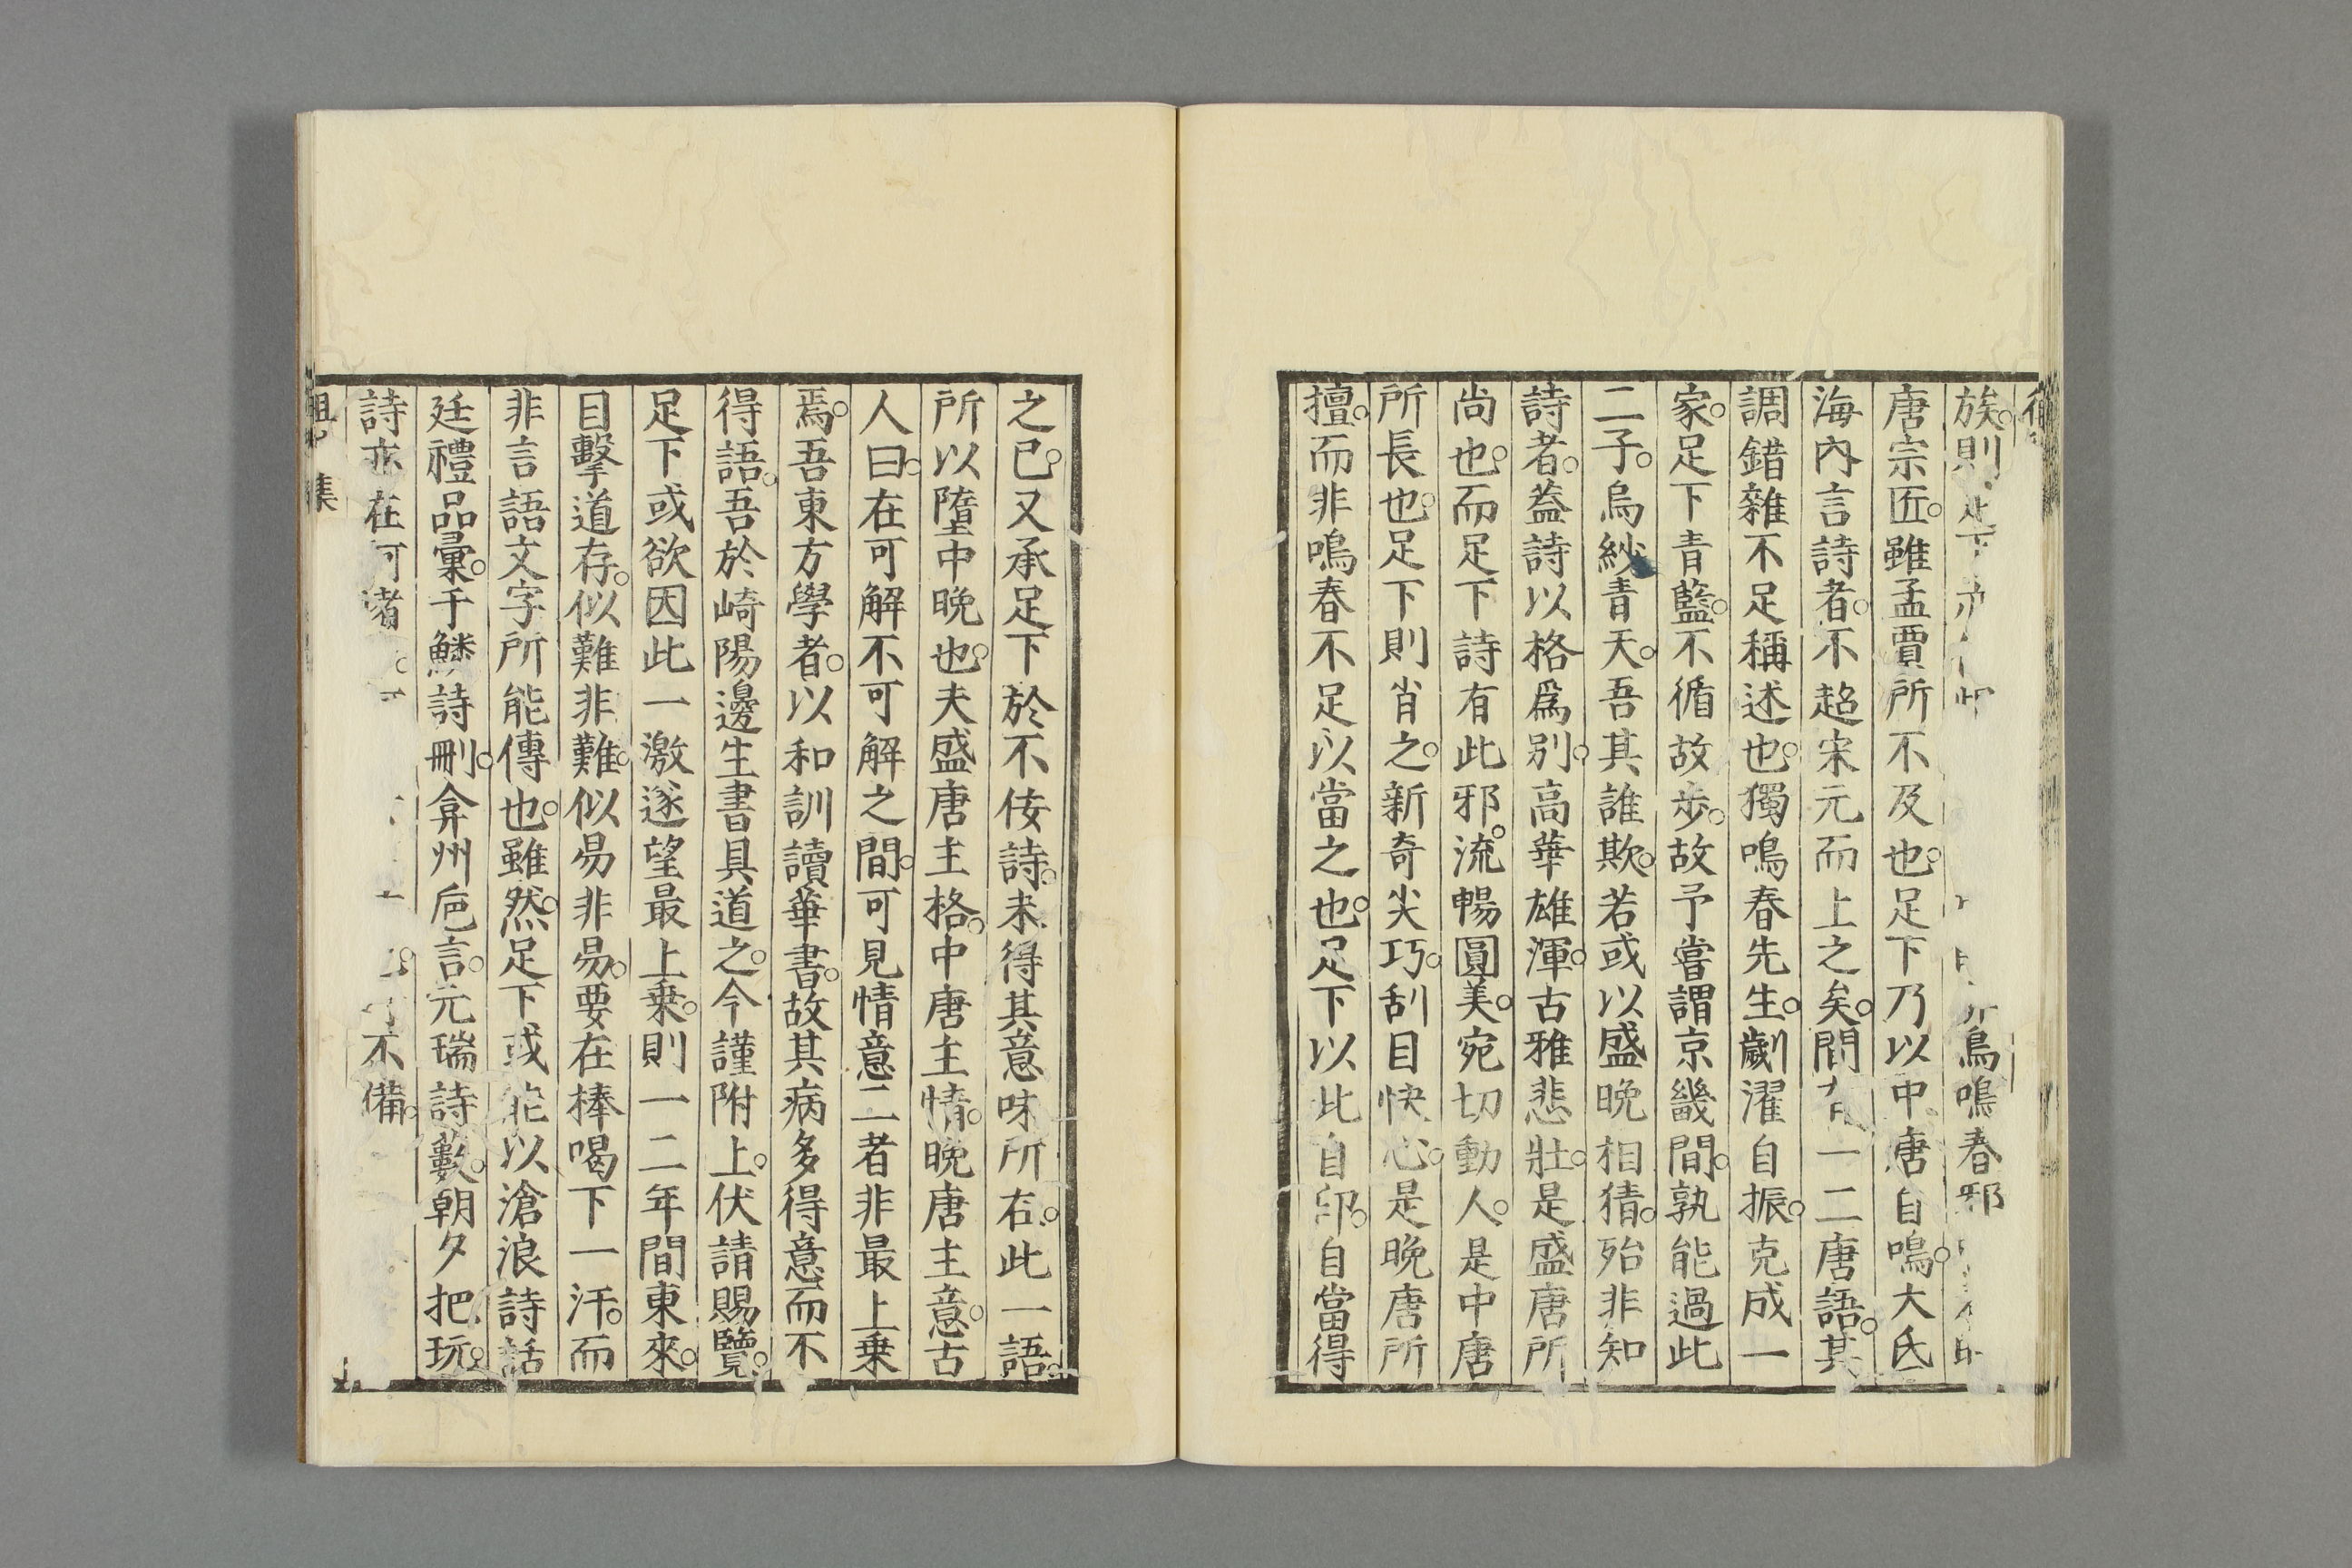 族。則足下
鳥鳴春邪
唐宗匠。雖孟賈所不及也。足下乃以中唐自鳴。大氐
海內言詩者。不趋宋元而上之矣。間有一二唐語。其
調錯雜不足稱述也。獨鳴春先生。劌濯自振。克成一
家。足下青藍。不循故步。故予嘗謂京畿間。孰能過此
二子。烏紗青天。吾其誰欺。若或以盛晚相猜。殆非知
詩者。蓋詩以格爲別。高華雄渾。古雅悲壯。是盛唐所
尚也。而足下詩有此邪。流暢圓美。宛切動人。是中唐
所長也。足下則肖之。新奇尖巧。刮目快心。是晚唐所
擅。而非鳴春不足以當之也。足下以此自印。自當得
之已。又承足下於不佞詩。未得其意味所在。此一語。
所以墮中晚也。夫盛唐主格。中唐主情。晚唐主意。古
人曰。在可解不可解之間。可見情意二者非最上乗
焉。吾東方學者。以和訓讀華書。故其病多得意而不
得語。吾於崎陽邊生書具道之。今謹附上。伏請賜覽。
足下或欲因此一激遂望最上乗。則一二年間東來。
目擊道存。似難非難。似易非易。要在棒喝下一汗。而
非言語文字所能傳也。雖然。足下或能以滄浪詩話
廷禮品彙。于鱗詩刪。弇州卮言。元瑞詩藪。朝夕把玩。
詩亦在可渚
不備。